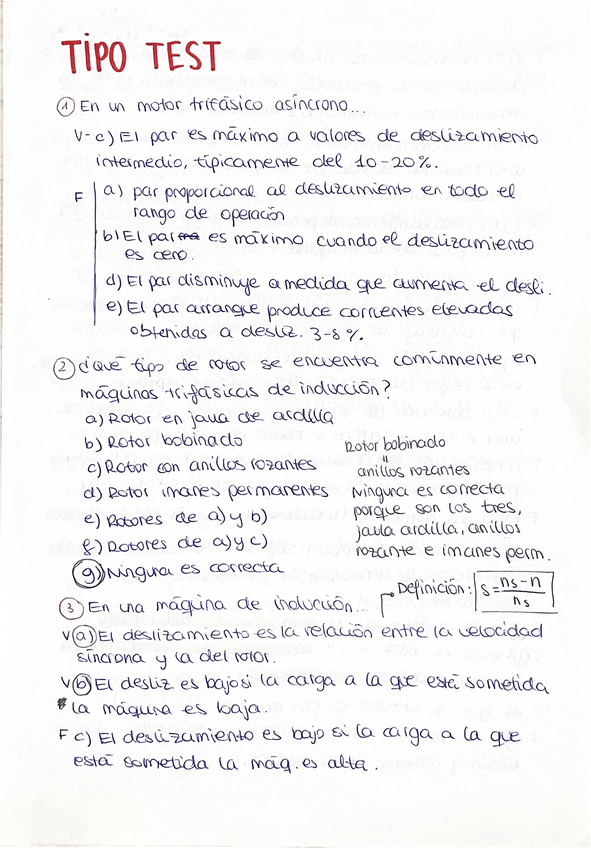 TIPO TEST
1 En un motor trifásico asíncrono...
V-c) El par es máximo a valores de deslizamiento
intermedio, típicamente del 10-20%.
F
a) par proporcional al deslizamiento en todo el
rango de operación
b) El par es máximo cuando el deslizamiento
es cero.
d) El par disminuye a medida que aumenta el desli.
e) El par arranque produce corrientes elevadas
obtenidas a desliz. 3-8%.
2 ¿Qué tipo de rotor se encuentra comúnmente en
máquinas trifásicas de inducción?
a) Rotor en jaula de ardilla
b) Rotor bobinado
c) Rotor con anillos rozantes
d) Rotor imanes permanentes
e) Rotores de a) y b)
f) Rotores de a) y c)
g) Ninguna es correcta
Rotor bobinado
"
anillos rozantes
Ninguna es correcta
porque son los tres,
jaula ardilla, anillos
rozante e imanes perm.
3 En una máquina de indución...
Definición: S = ns - n / ns
V a) El deslizamiento es la relación entre la velocidad
síncrona y la del rotor.
V b) El desliz es bajo si la carga a la que está sometida
la máquina es baja.
F c) El deslizamiento es bajo si la carga a la que
está sometida la máq. es alta.